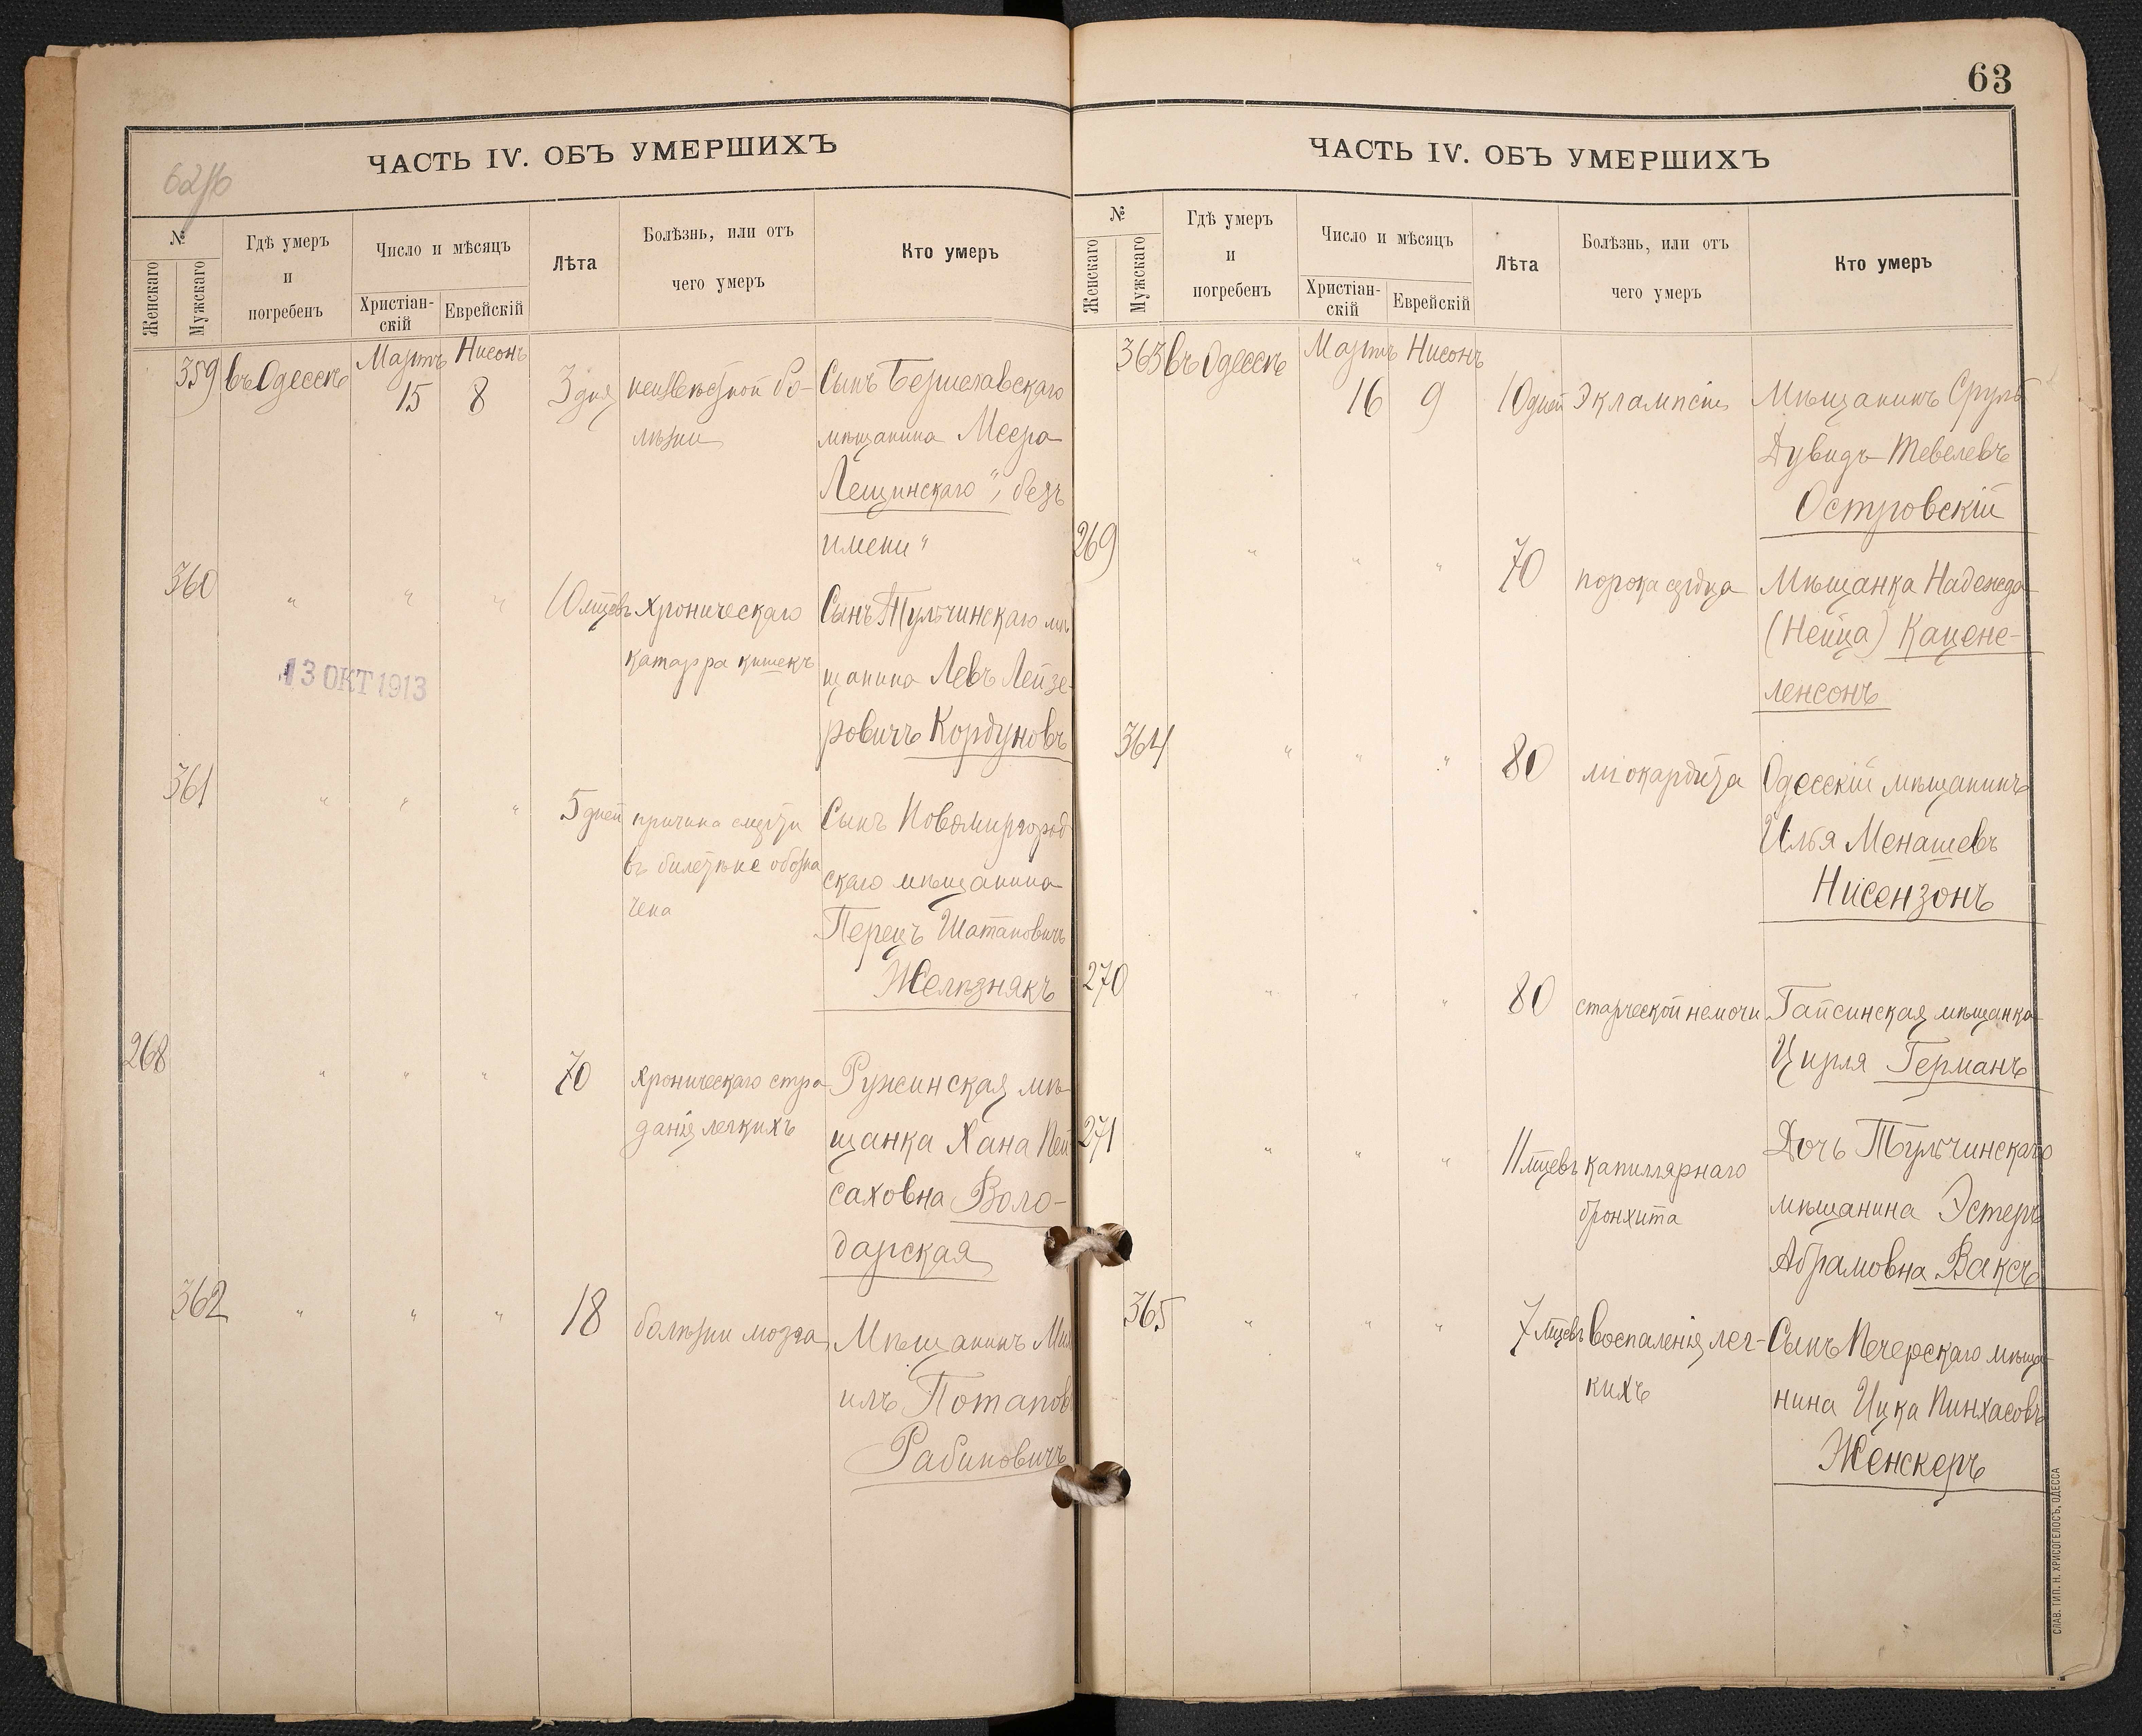 ЧАСТЬ IV. ОБЪ УМЕРШИХЪ
№
Женскаго
Мужскаго
Гдѣ умеръ
и
погребенъ
Число и мѣсяцъ
Христіан-
скій
Еврейскій
Лѣта
Болѣзнь, или отъ
чего умеръ
Кто умеръ
359 въ Одессѣ
Мартъ Нисонъ
15 8
3 дня
неизвѣстной бо-
лѣзни
Сынъ Бериславскаго
мѣщанина Меера
Лещинскаго „безъ
имени"
360 " " "
10 мѣцевъ
хроническаго
катарра кишекъ
Сынъ Тульчинскаго мѣ
щанина Левъ Лейзе-
ровичъ Кордуновъ
13 ОКТ 1913
361 " " "
5 дней
причина смерти
въ билетѣ не обозна
чена
Сынъ Новомиргород
скаго мѣщанина
Перецъ
Желѣзнякъ
268 " " "
70
хроническаго стра-
данія легкихъ
Ружинская мѣ-
щанка Хана Пей
саховна Воло-
дарская
362 " " "
18
болѣзни мозга
Мѣщанинъ
Потапов
Рабиновичъ
63
ЧАСТЬ IV. ОБЪ УМЕРШИХЪ
№
Женскаго
Мужскаго
Гдѣ умеръ
и
погребенъ
Число и мѣсяцъ
Христіан-
скій
Еврейскій
Лѣта
Болѣзнь, или отъ
чего умеръ
Кто умеръ
363 въ Одессѣ
Мартъ Нисонъ
16 9
10 дней
Эклампсіи
Мѣщанинъ Сруль
Дувидъ Тевелевъ
Островскій
269 " " "
70
порока сердца
Мѣщанка Надежда
(Нейца) Кацене-
ленсонъ
364 " " "
80
міокардита
Одесскій мѣщанинъ
Илья Менашевъ
Нисензонъ
270 " " "
80
старческой немочи
Гайсинская мѣщанка
Цирля Германъ
271 " " "
11 мѣцевъ
капиллярнаго
бронхита
Дочь Тульчинскаго
мѣщанина Эстеръ
Абрамовна Ваксъ
365 " " "
7 мѣцевъ
воспаленія лег-
кихъ
Сынъ Печерскаго мѣща-
нина Ицка Пинхасовъ
Женскеръ
СЛАВ. ТИП. Н. ХРИСОГЕЛОСЪ, ОДЕССА